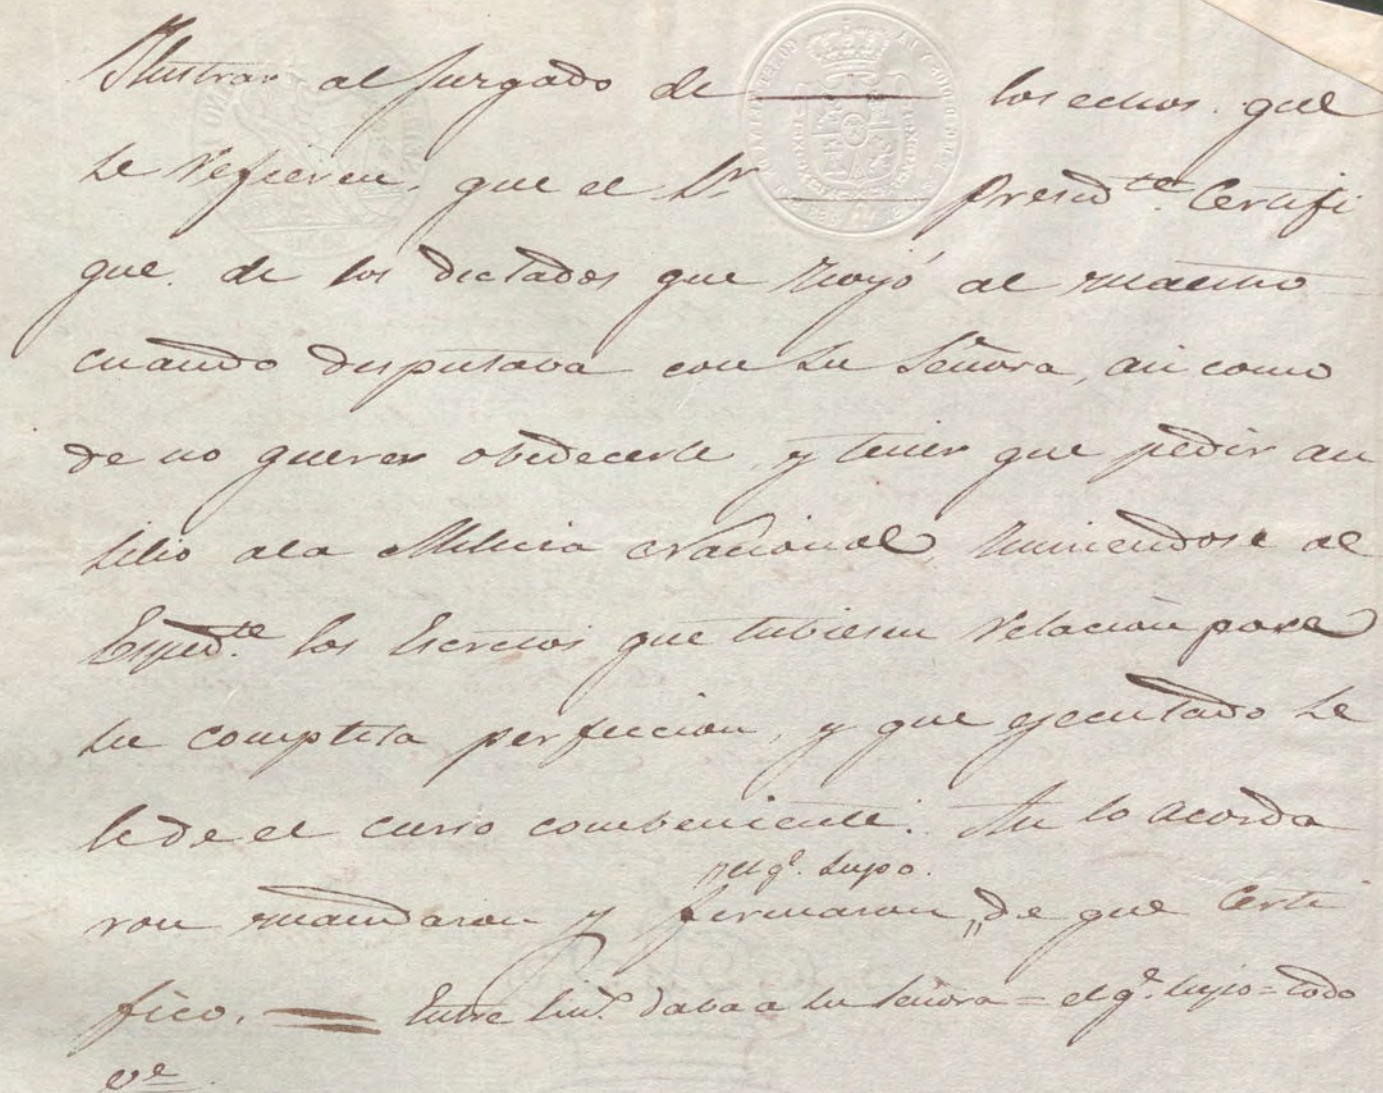 Ilustrar al Jurgado de ——— los echos. que
se Refieren, que el Sr ——— Presid.te Certifi
que. de los dictados que oyó al maestro
cuando disputava con su Señora, asi como
de no querer obedecerle, y tener que pedir au
silio ala Milicia Nacional, uniendose al
Exped.te los Escritos que tubiesen Relacion para
su completa perfeccion, y que ejecutado se
le de el curso combeniente. Asi lo acorda
el q.e supo.
ron mandaron y firmaron, de que Certi
fico. == Entre lin.s dava a su señora = el q.e supo = todo
v.e